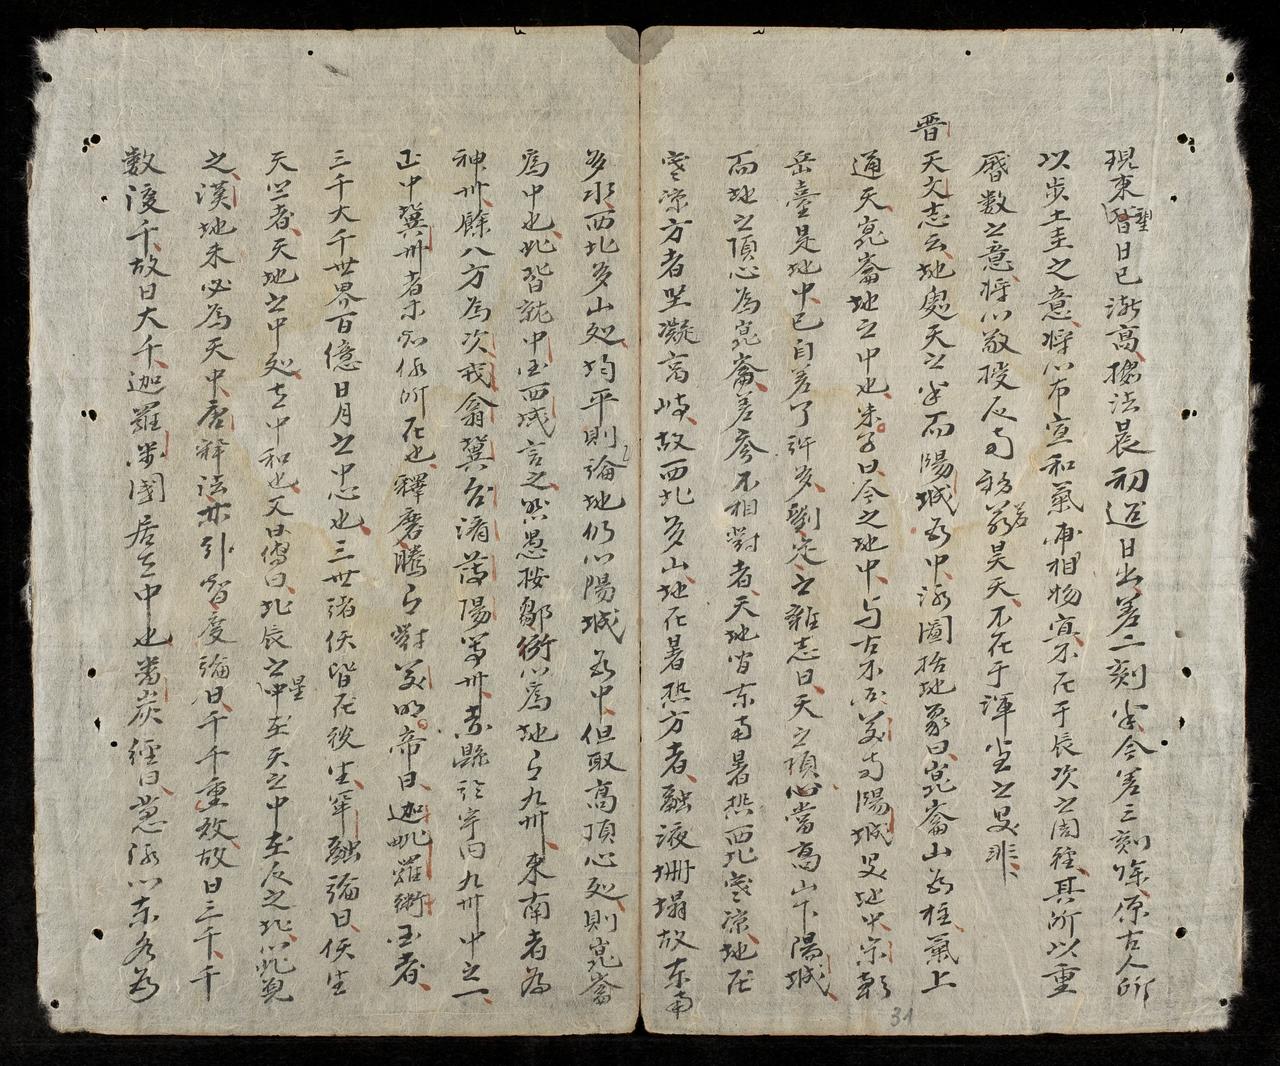 現東望皆日已漸高據法晨初迢日出差二刻半今差三刻噫原古人所
以步土圭之意將以布宣和氣輔相物宜不在于辰次之周徑其所以重
曆數之意將以敬授人時若昊天不在于渾蓋之是非
晋天文志云地處天之半而陽城為中河圖括地象曰崑崙山為柱氣上
通天崑崙地之中也朱子曰今之地中与古不同漢時陽城是地中宋朝
岳臺是地中已自差了許多劉定之雜志曰天之頂心當高山下陽城
而地之頂心為崑崙差彥不相對者天地皆東南暑熱西北寒凉地在
寒凉方者堅凝高峙故西北多山地在暑熱方者融液坍塌故東南
多水西北多山處均平則論地仍以陽城為中但取高頂心處則崑崙
為中也此皆就中国西域言之然愚按鄒衍以為地有九州東南者為
神州餘八方為次戎弇冀台濟薄陽等州赤縣於宇內九州中之一
正中冀州者不知何所在也釋摩騰有對漢明帝曰迦毗羅衛国者
三千大千世界百億日月之中心也三世諸佚皆在彼生牟融論曰佚生
天竺者天地之中處其中和也又曰傳曰北辰之星在天之中在人之北以此觀
之漢地未必為天中唐釋法琳引智度論曰千千重數故曰三千千
數復千故曰大千迦羅衛國居其中也婁炭經曰葱河以東名為